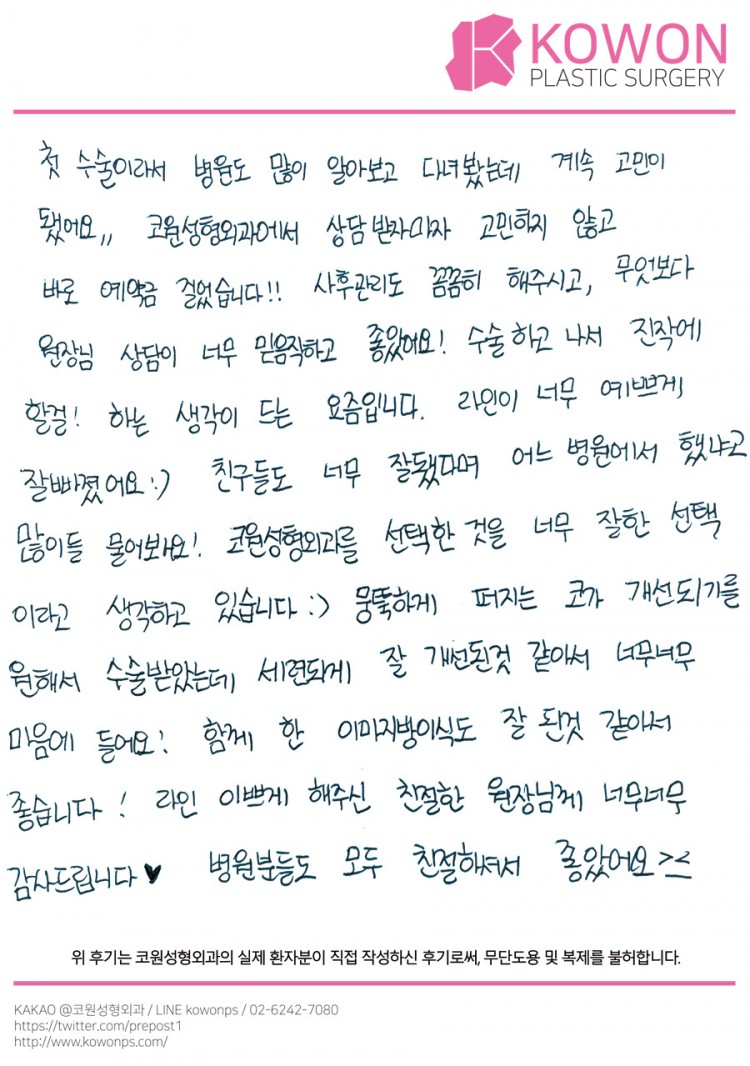 KOWON
PLASTIC SURGERY
첫 수술이라서 병원도 많이 알아보고 다녀봤는데 계속 고민이
됐어요,, 코원성형외과에서 상담받자마자 고민하지 않고
바로 예약금 걸었습니다!! 사후관리도 꼼꼼히 해주시고, 무엇보다
원장님 상담이 너무 믿음직하고 좋았어요! 수술하고 나서 진작에
할걸! 하는 생각이 드는 요즘입니다. 라인이 너무 예쁘게
잘빠졌어요:) 친구들도 너무 잘됐다며 어느 병원에서 했냐고
많이들 물어봐요! 코원성형외과를 선택한 것을 너무 잘한 선택
이라고 생각하고 있습니다:) 뭉뚝하게 퍼지는 코가 개선되기를
원해서 수술받았는데 세련되게 잘 개선된것 같아서 너무너무
마음에 들어요! 함께 한 이마지방이식도 잘 된것 같아서
좋습니다! 라인 이쁘게 해주신 친절한 원장님께 너무너무
감사드립니다♥ 병원분들도 모두 친절하셔서 좋았어요><
위 후기는 코원성형외과의 실제 환자분이 직접 작성하신 후기로써, 무단도용 및 복제를 불허합니다.
KAKAO @코원성형외과 / LINE kowonps / 02-6242-7080
https://twitter.com/prepost1
http://www.kowonps.com/